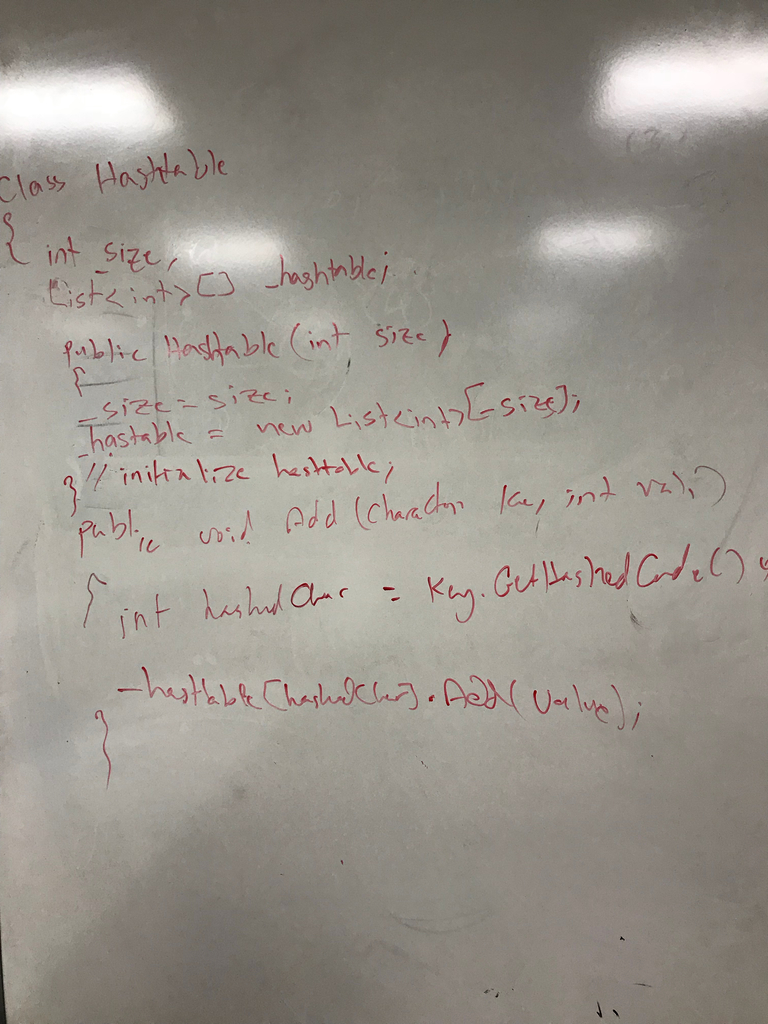 Class Hashtable
{
int _size;
List<int>[] _hashtable;
public Hashtable (int size)
{
_size = size;
_hastable = new List<int>[_size];
} // initialize hashtable;
public void Add (Character Key, int val)
{ int hashedChar = Key.GetHashedCode()
_hashtable[hashedChar].Add(value);
}